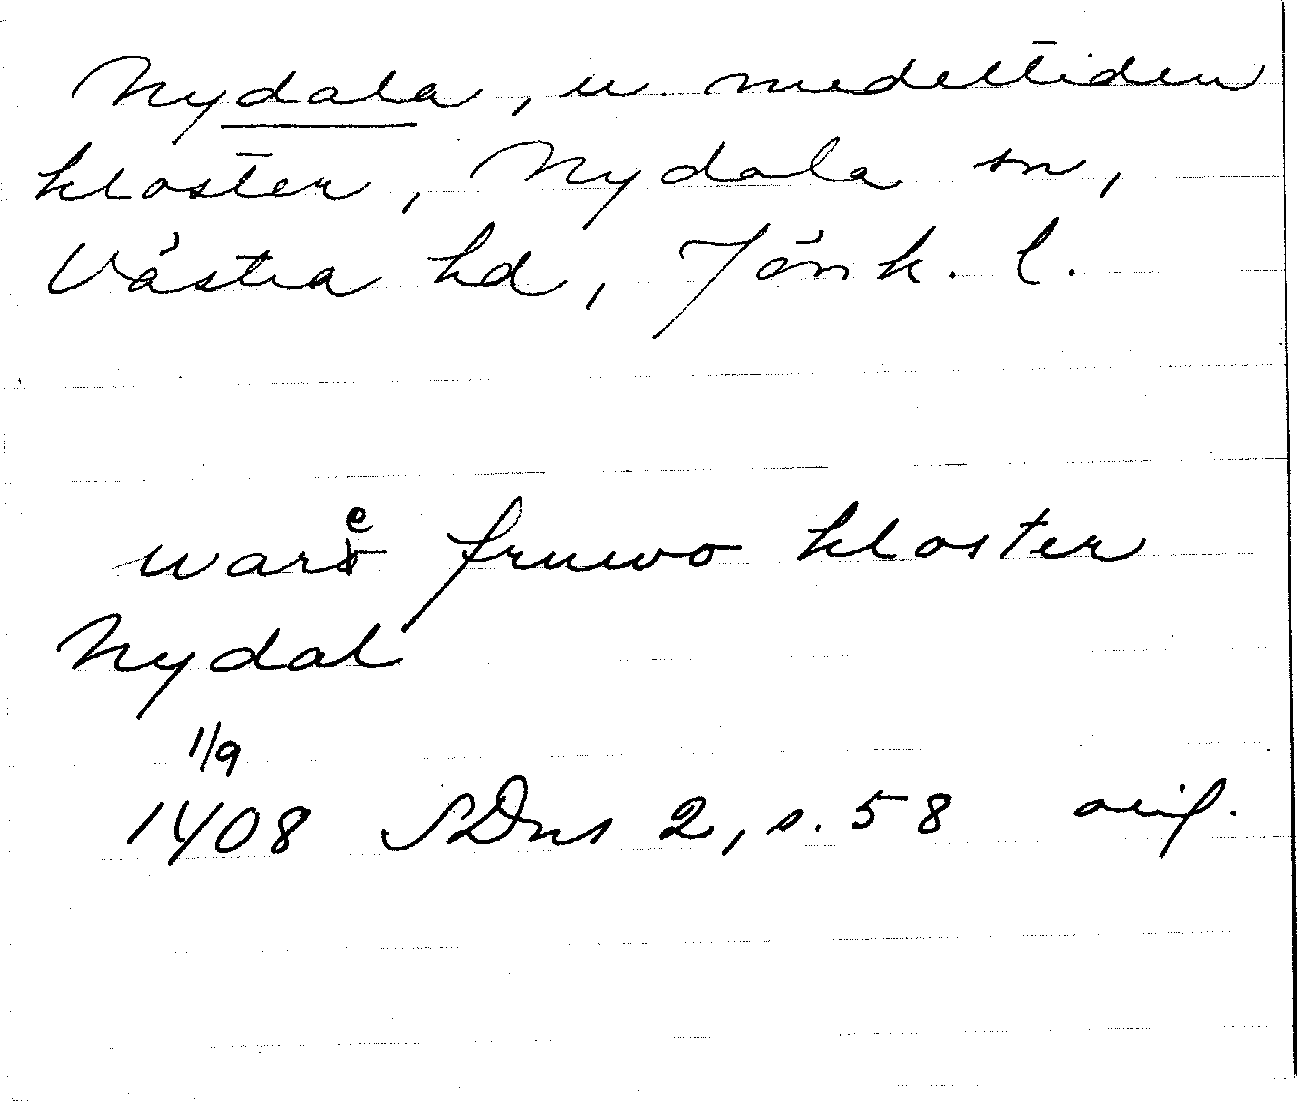 Nydala, u. medeltiden
kloster, Nydala sn,
Västra hd, Jönk. l.
ware fruwo kloster
Nydal
1/9
1408 SDns 2, s. 58 orig.